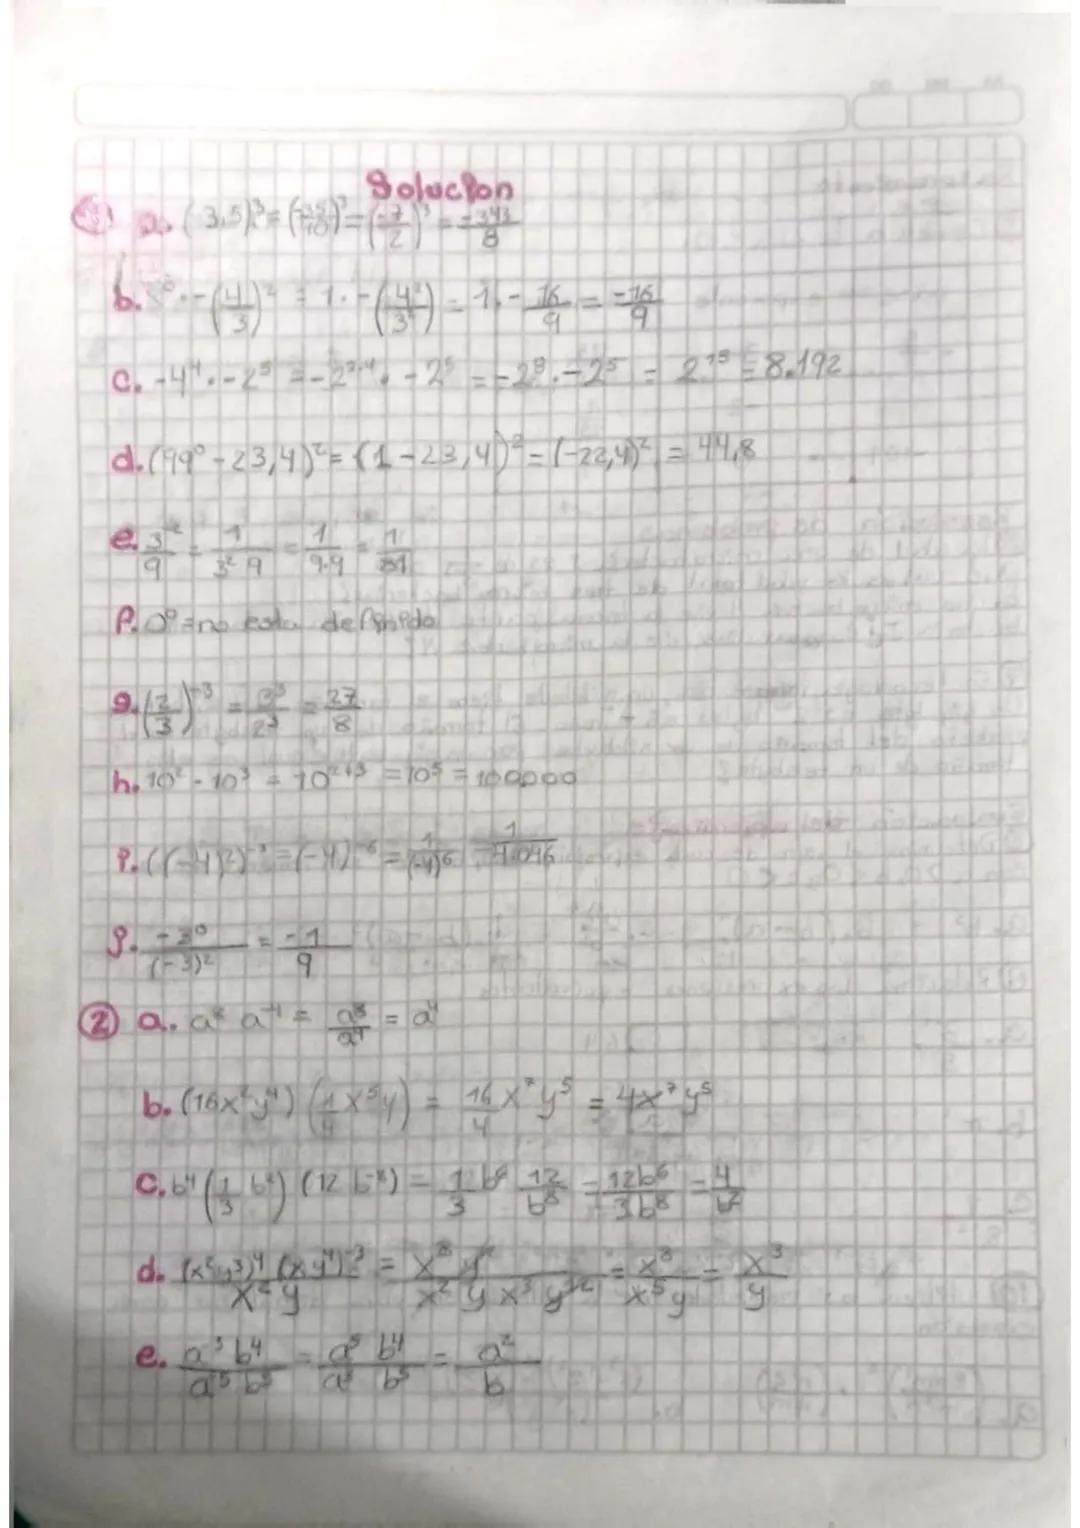 Solucion
① a. (-3,5)³ = (-35/10)³ = (-7/2)³ = -343/8
b. 5⁰ · -(4/3)² = 1 · -(4²/3²) = 1 · - 16/9 = -16/9
c. -4⁴ · -2⁵ = -2²·⁴ · -2⁵ = -2⁸ · -2⁵ = 2¹³ = 8.192
d. (99⁰ - 23,4)² = (1 - 23,4)² = (-22,4)² = 44,8
e. 3⁻²/9 = 1/3² 9 = 1/9·9 = 1/81
f. 0⁰ = no esta definido
g. (2/3)⁻³ = 3³/2³ = 27/8
h. 10² - 10³ = 10²⁺³ = 10⁵ = 100000
i. ((-4)2)⁻³ = (-4)⁻⁶ = 1/(-4)⁶ = 1/4.096
j. -3⁰/(-3)² = -1/9
② a. a⁸ a⁻⁴ = a⁸/a⁴ = a⁴
b. (16x²y⁴) (1/4 x⁵y) = 16/4 x⁷y⁵ = 4x⁷y⁵
c. b⁴ (1/3 b²) (12 b⁻⁸) = 1/3 b⁶ 12/b⁸ = 12b⁶/3b⁸ = 4/b²
d. (x²y³)⁴ (xy⁴)⁻³/x²y = x⁸ y¹²/x² y x³ y¹² = x⁸/x⁵y = x³/y
e. a⁻³ b⁴/a⁵ b⁵ = a⁵ b⁴/a³ b⁵ = a²/b